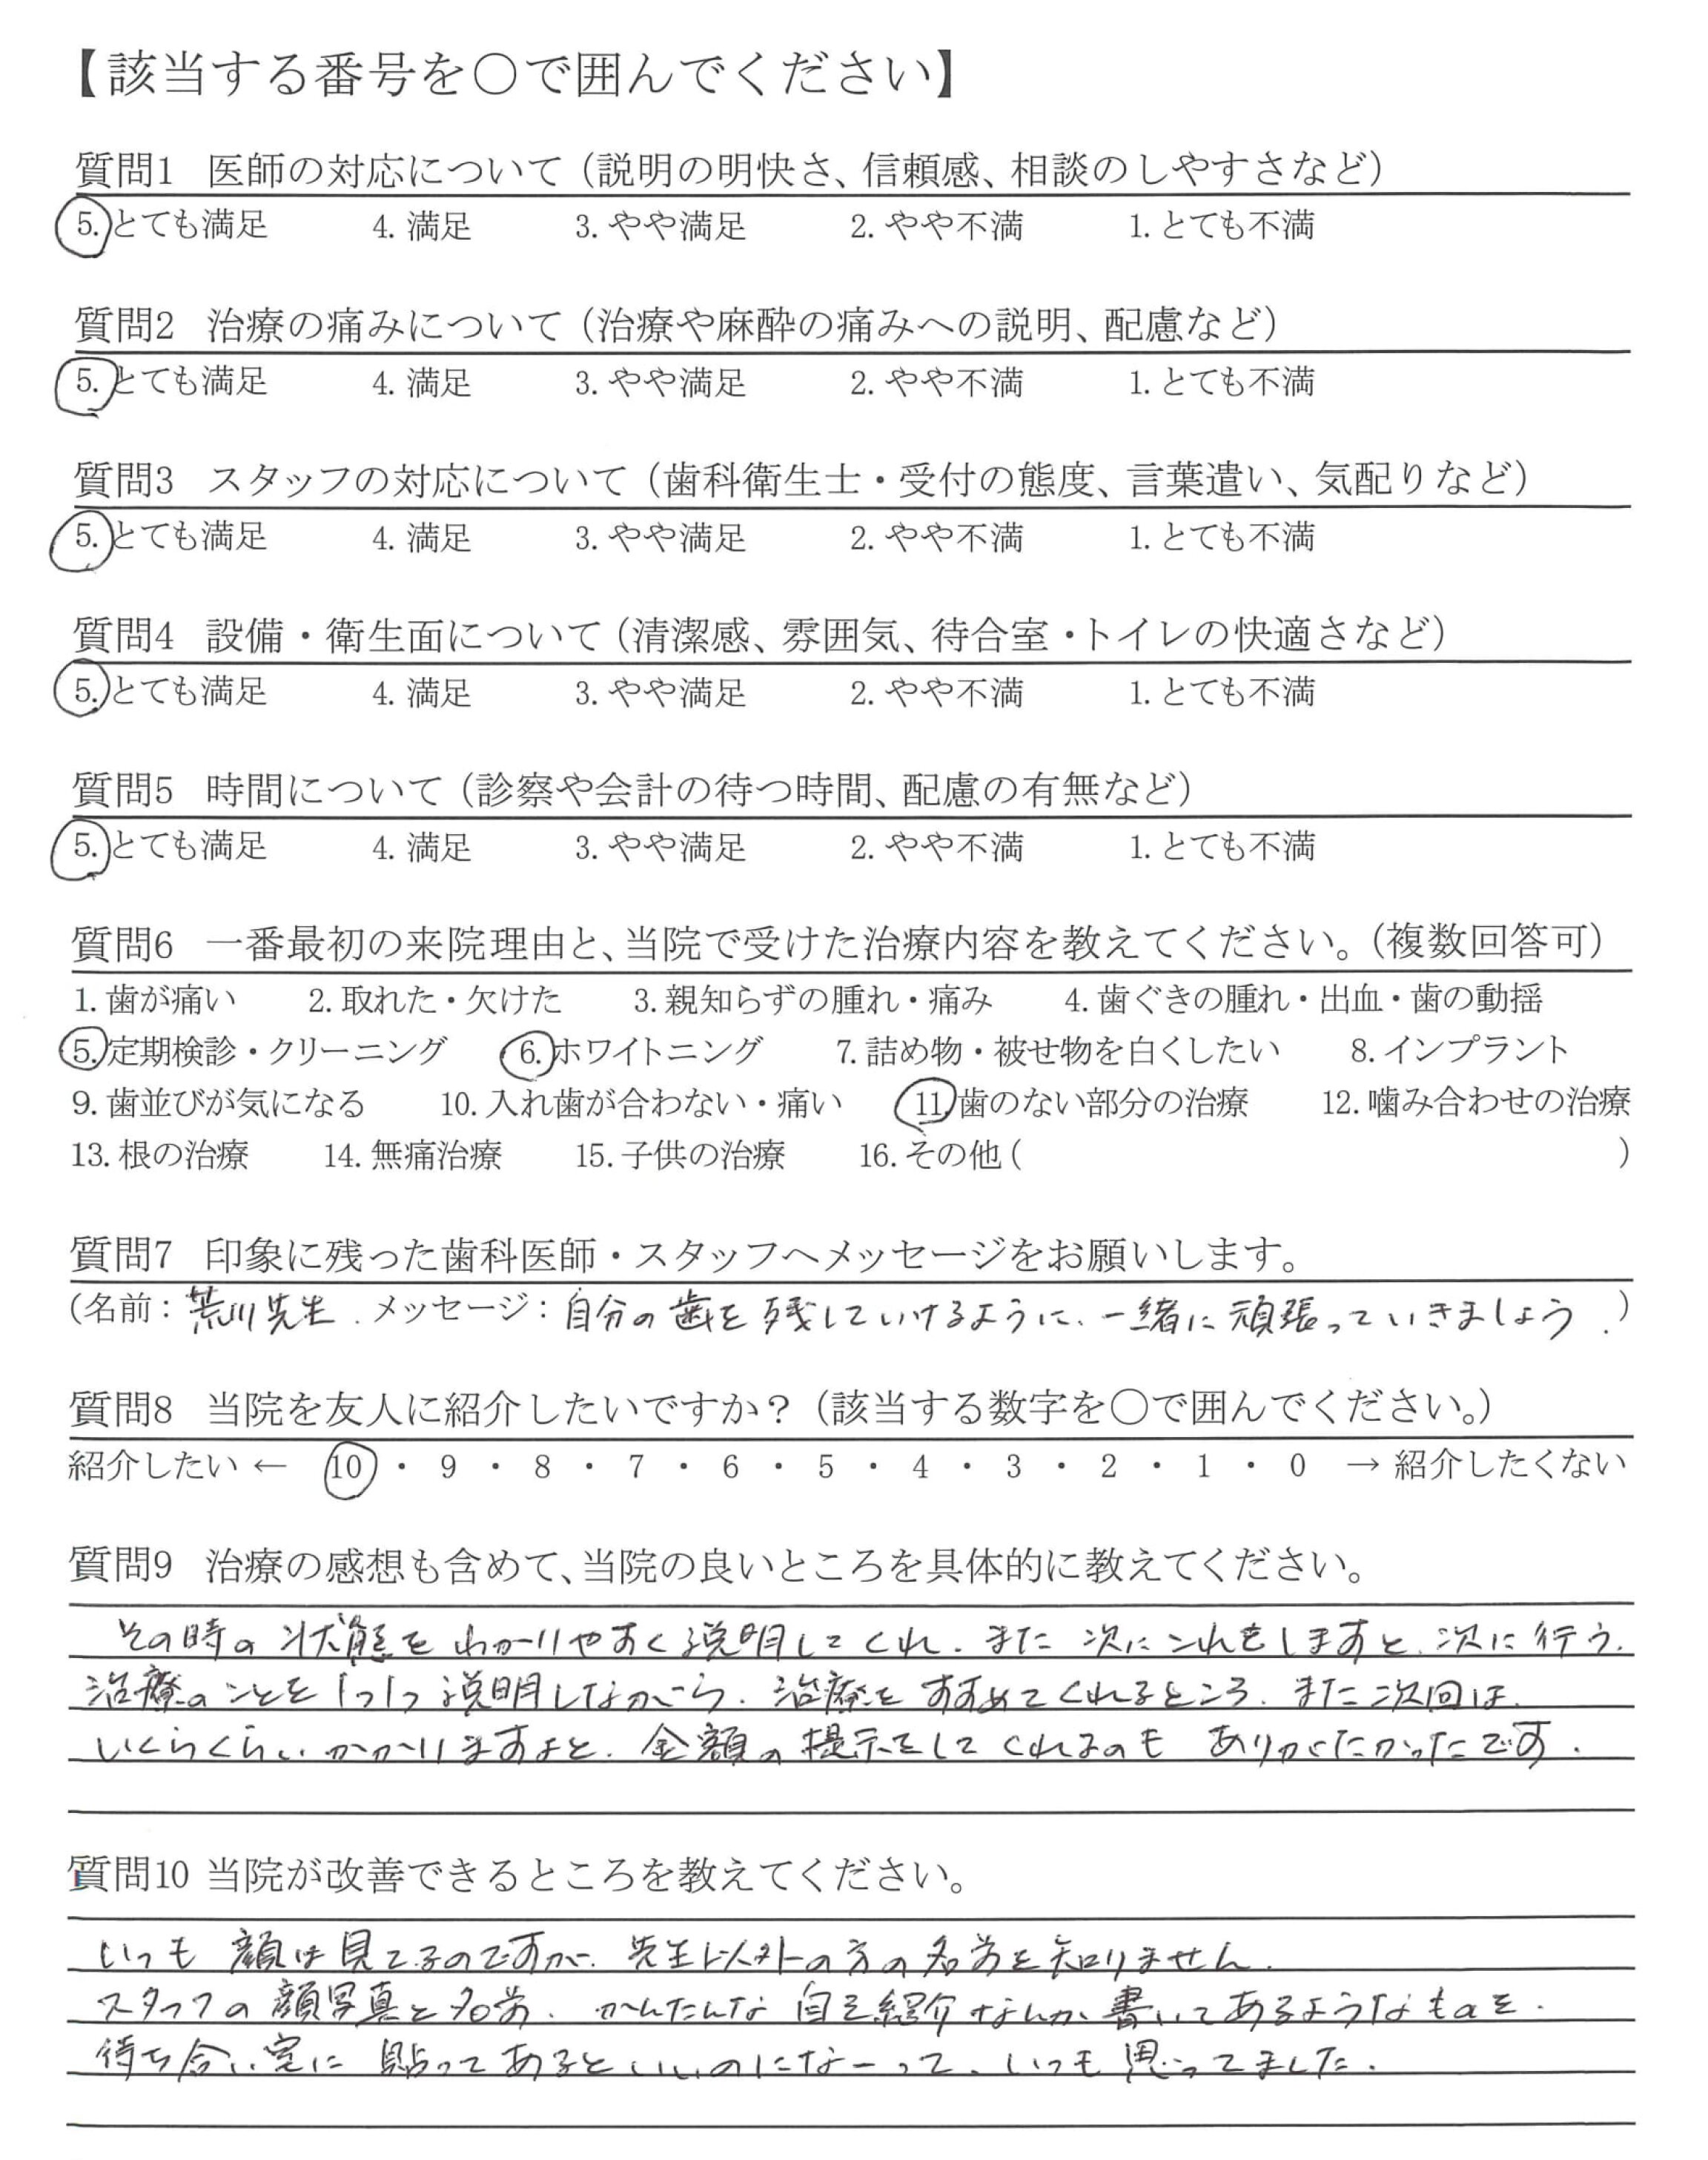 【該当する番号を〇で囲んでください】
質問1 医師の対応について（説明の明快さ、信頼感、相談のしやすさなど）
5. とても満足 4. 満足 3. やや満足 2. やや不満 1. とても不満
質問2 治療の痛みについて（治療や麻酔の痛みへの説明、配慮など）
5. とても満足 4. 満足 3. やや満足 2. やや不満 1. とても不満
質問3 スタッフの対応について（歯科衛生士・受付の態度、言葉遣い、気配りなど）
5. とても満足 4. 満足 3. やや満足 2. やや不満 1. とても不満
質問4 設備・衛生面について（清潔感、雰囲気、待合室・トイレの快適さなど）
5. とても満足 4. 満足 3. やや満足 2. やや不満 1. とても不満
質問5 時間について（診察や会計の待つ時間、配慮の有無など）
5. とても満足 4. 満足 3. やや満足 2. やや不満 1. とても不満
質問6 一番最初の来院理由と、当院で受けた治療内容を教えてください。（複数回答可）
1. 歯が痛い 2. 取れた・欠けた 3. 親知らずの腫れ・痛み 4. 歯ぐきの腫れ・出血・歯の動揺
5. 定期検診・クリーニング 6. ホワイトニング 7. 詰め物・被せ物を白くしたい 8. インプラント
9. 歯並びが気になる 10. 入れ歯が合わない・痛い 11. 歯のない部分の治療 12. 噛み合わせの治療
13. 根の治療 14. 無痛治療 15. 子供の治療 16. その他（ ）
質問7 印象に残った歯科医師・スタッフへメッセージをお願いします。
（名前：荒川先生. メッセージ：自分の歯を残していけるように、一緒に頑張っていきましょう.）
質問8 当院を友人に紹介したいですか？（該当する数字を〇で囲んでください。）
紹介したい ← 10 ・ 9 ・ 8 ・ 7 ・ 6 ・ 5 ・ 4 ・ 3 ・ 2 ・ 1 ・ 0 → 紹介したくない
質問9 治療の感想も含めて、当院の良いところを具体的に教えてください。
その時の状態をわかりやすく説明してくれ、また次にこれをしますと、次に行う、
治療のことを1つ1つ説明しながら、治療をすすめてくれるところ、また次回は、
いくらくらいかかりますよと、金額の提示をしてくれるのもありがたかったです.
質問10 当院が改善できるところを教えてください。
いつも顔は見てるのですが、先生以外の方の名前を知りません.
スタッフの顔写真と名前、かんたんな自己紹介なんか書いてあるようなものを、
待ち合い室に貼ってあるといいのになーって、いつも思ってました.